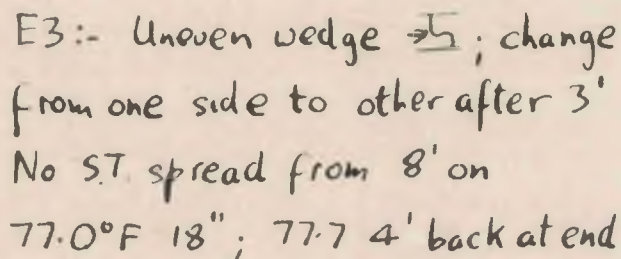 E3:- Uneven wedge ; change
from one side to other after 3'
No S.T. spread from 8' on
77.0°F 18"; 77.7 4' back at end